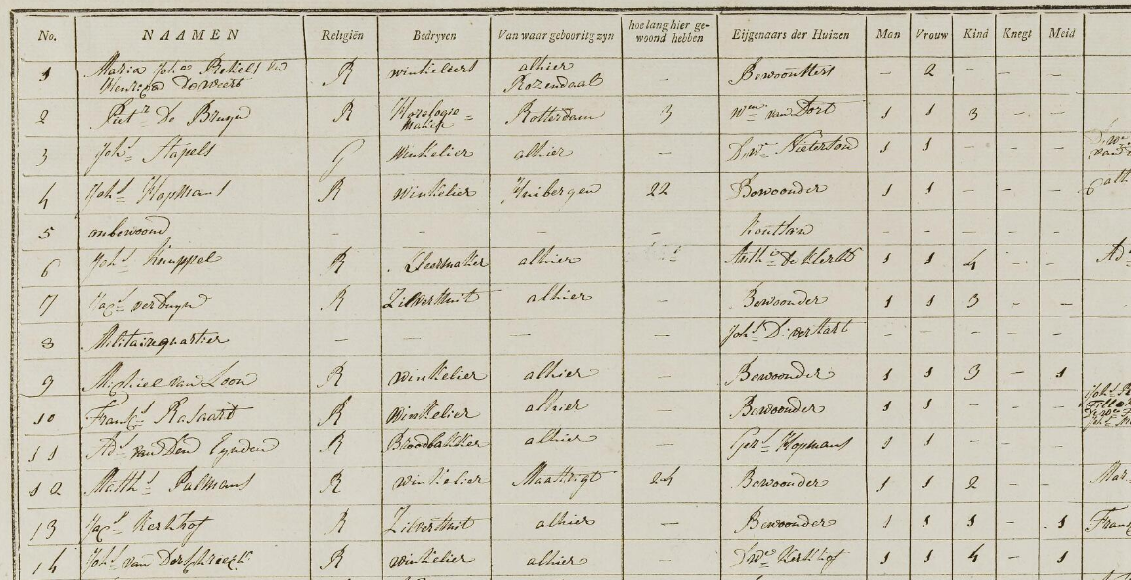 No. NAAMEN Religiën Bedryven Van waar geboortig zyn hoe lang hier gewoond hebben Eijgenaars der Huizen Man Vrouw Kind Knegt Meid
1 Maria Joha Rekels en winkeliers alhier Bewoonsters – 2 – – –
Henrica De Weert R Rozendaal –
2 Pietr De Bruyn R Horologie = maker Rotterdam 3 Wen van Dort 1 1 3 – –
3 Johs Stapels G Winkelier alhier – D. We 1 1 – – –
4 Johs Hopmans R Winkelier Huibergen 22 Bewoonder 1 1 – – –
5 onbewoond – – – – – – – – –
6 Johs Knuppel R Schermaker alhier Anth. De Klerck 1 1 4 – – Ad
7 Jacs verbuyn R Zilversmit alhier – Bewoonder 1 1 3 – –
8 Militaire quartier – – – – Johs D. ver Hart – – – – –
9 Michiel van Loon R Winkelier alhier – Bewoonder 1 1 3 – 1
10 Francs Rasaart R Winkelier alhier – Bewoonder 1 1 – – –
11 Ads van Den Eynden R Broodbakker alhier – Gers Hopmans 1 1 – –
12 Matths Palmans R winkelier Maastrigt 24 Bewoonder 1 1 2 – – Mar
13 Jacs Kerkhof R Zilversmit alhier – Bewoonder 1 1 1 – 1 Franc
14 Johs van Der Schreeck R winkelier alhier – D We Kerkhof 1 1 4 – 1